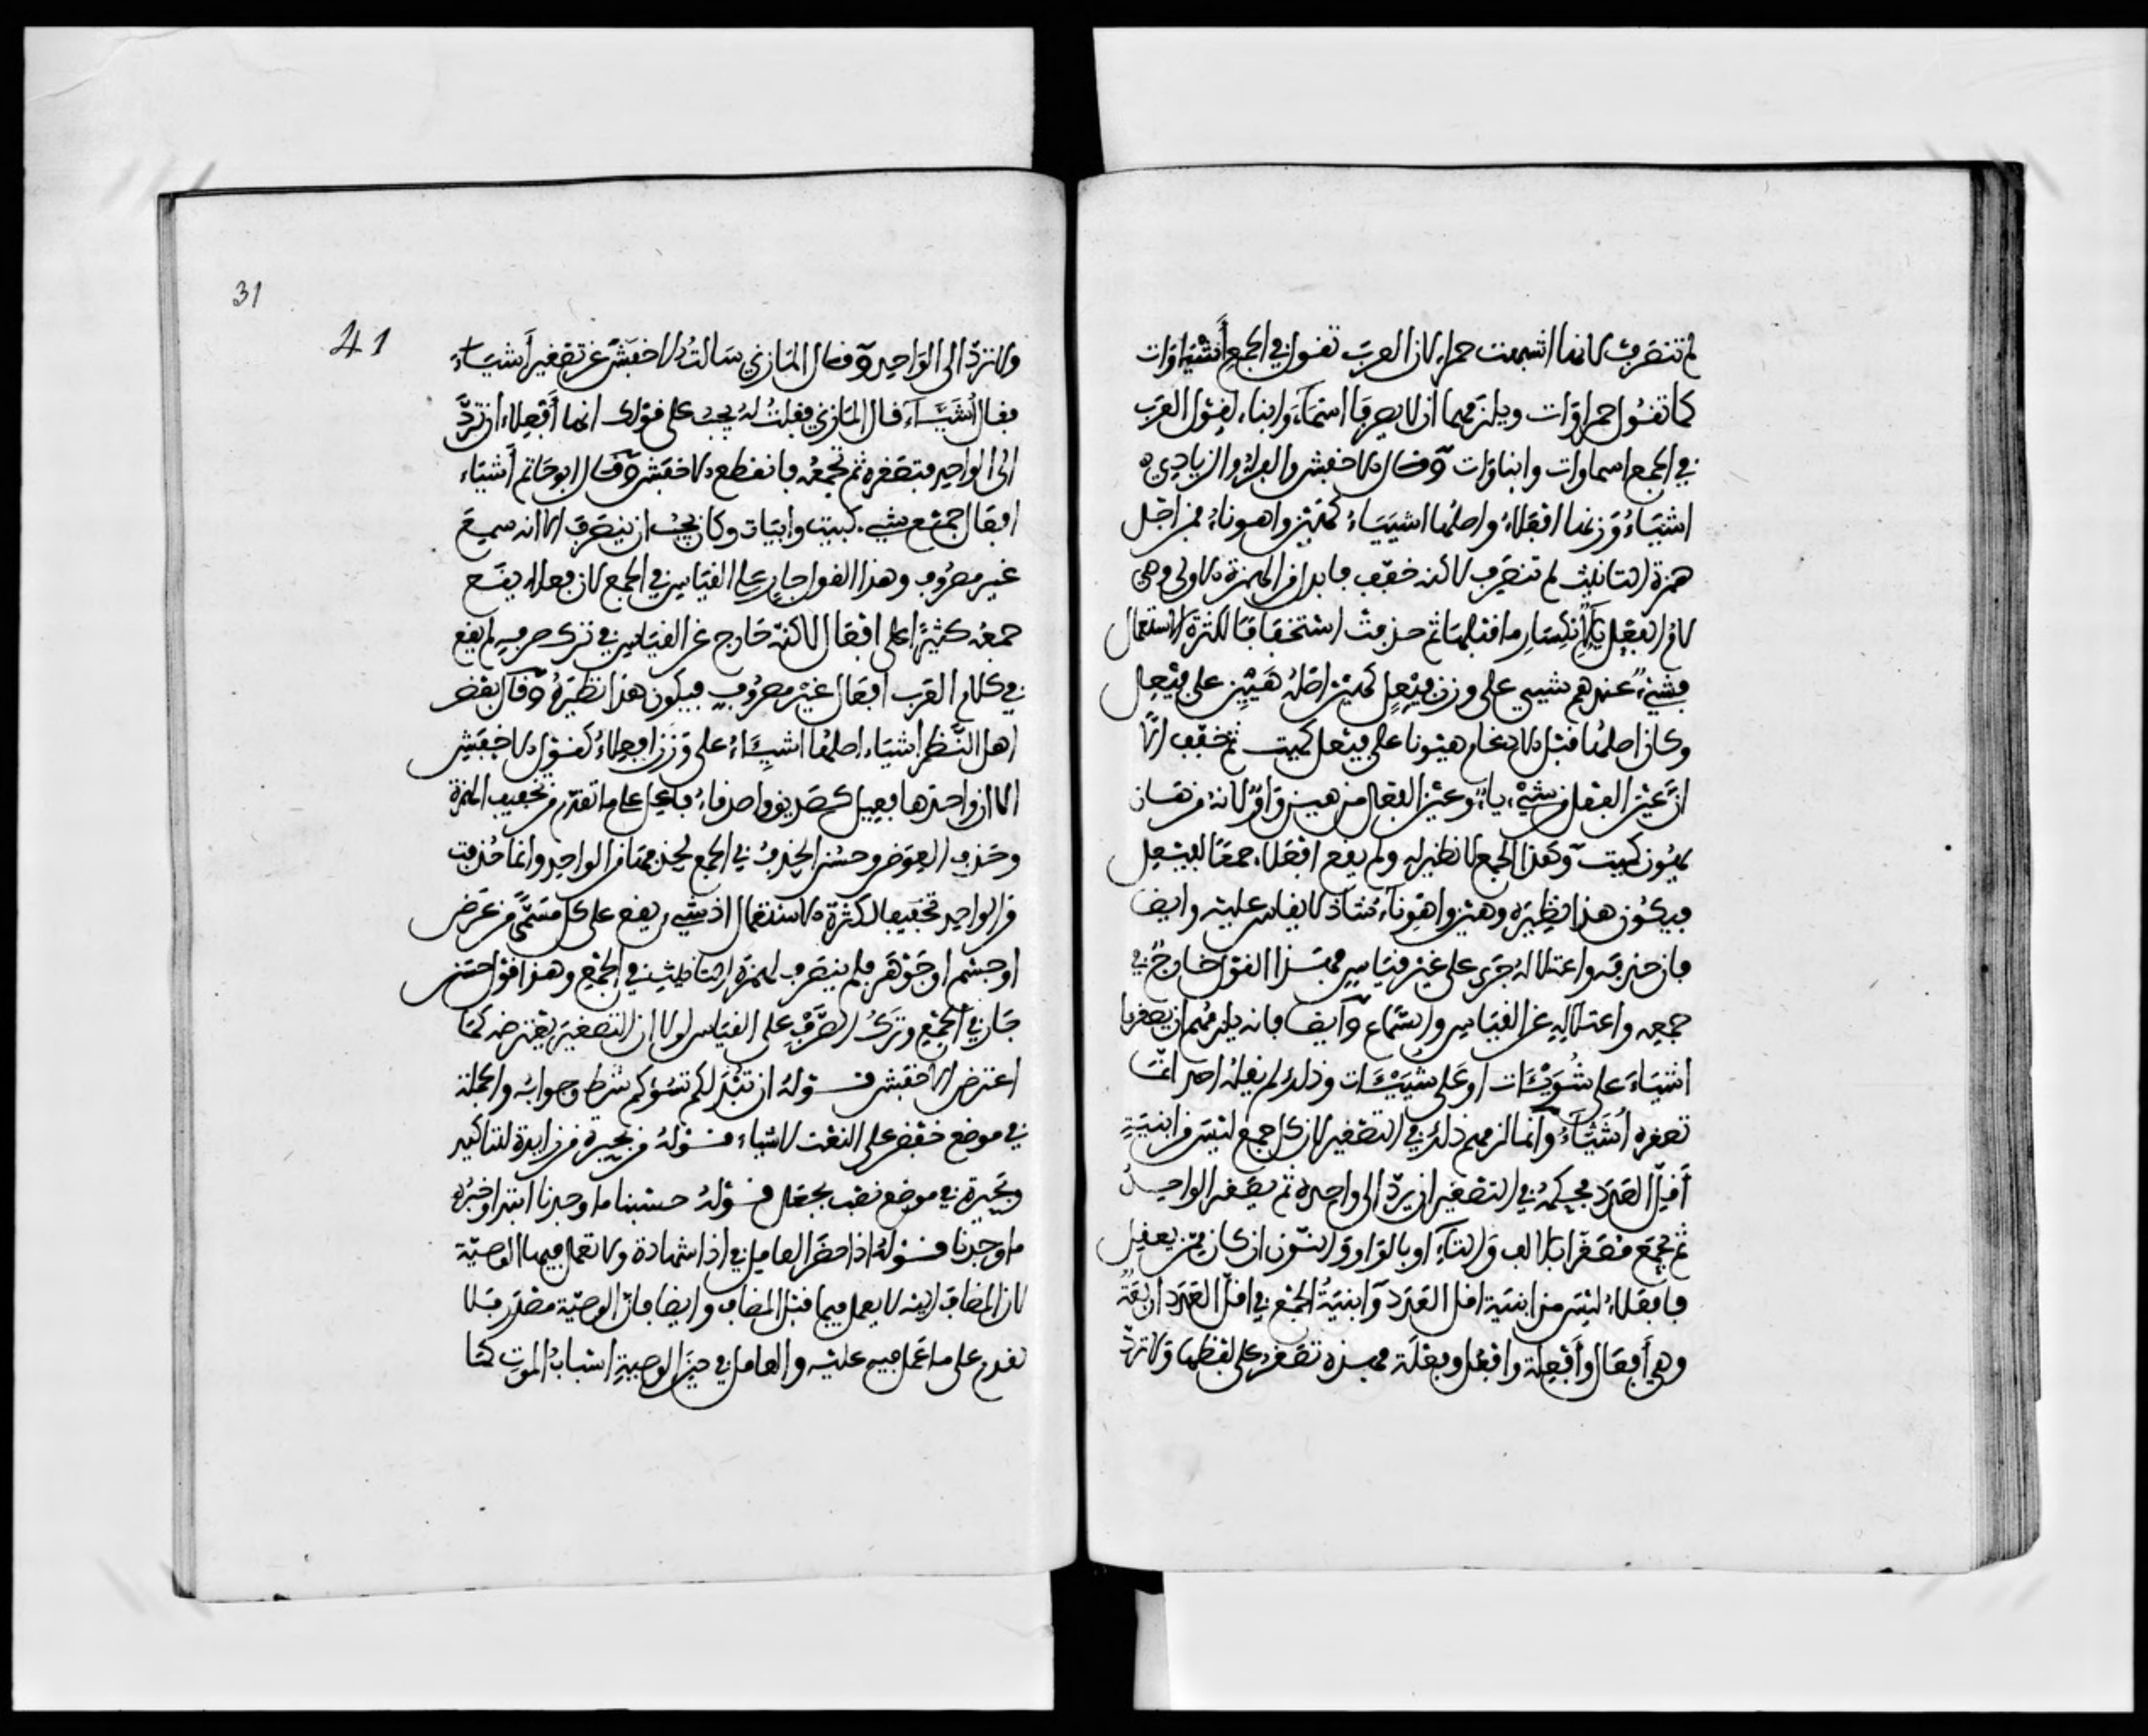 لم تنصرف لانها اشبهت حمراء لان العرب تقول في الجمع أشياوات
كما تقول حمراوات ويلزمهما ان لا يصرفا اسماء وابناء لقول العرب
في الجمع اسماوات وابناوات وقال الاخفش والفراء والزيادي
اشياء وزنها افعلاء واصلها اشيياء كهين واهوناء فمن اجل
همزة التانيث لم تنصرف لاكنه خفف فابدل من الهمزة الاولى وهي
لام الفعل ياء لانكسار ما قبلها ثم حذفت استخفافا لكثرة الاستعمال
فشيء عندهم شيي على وزن فيعل كهين اصله هيين على فيعل
وكان اصلها قبل الادغام هيونا على فيعل كميت ثم خفف الا
ان عين الفعل من شيء ياء وعين الفعل من هين واو لانه من هان
يهون كميت وهذا الجمع لا نظير له ولم يقع افعلاء جمعا لفيعل
فيكون هذا نظيره وهين واهوناء شاذ لا يقاس عليه وايضا
فان حذفه واعتلاله جرى على غير قياس فهذا القول خارج في
جمعه واعتلاله عن القياس والسماع وايضا فانه يلزمهم ان يصغروا
اشياء على شويئات او على شييئات وذلك لم يقله احد انما
تصغره أشياء وانما لزمهم ذلك في التصغير لان كل جمع ليس من ابنية
أقل العدد فحكمه في التصغير ان يرد الى واحده ثم يصغر الواحد
ثم يجمع مصغرا بالالف والتاء او بالواو والنون ان كان ممن يعقل
فافعلاء ليس من ابنية اقل العدد وابنية الجمع في اقل العدد اربعة
وهي أفعال وأفعلة وافعل وفعلة فهذه تصغر على لفظها ولا ترد
31
41
ولا ترد الى الواحد وقال المازني سالت الاخفش عن تصغير أشياء
فقال أشياء قال المازني فقلت له يجب على قولك انها أفعلاء ان ترد
الى الواحد فتصغره ثم تجمعه فانقطع الاخفش وقال ابو حاتم أشياء
افعال جمع شيء كبيت وابيات وكان يجب ان ينصرف الا انه سمع
غير مصروف وهذا القول جار على القياس في الجمع لان فعلا يقع
جمعه كثيرا على افعال لاكنه خارج عن القياس في ترك صرفه لم يقع
في كلام العرب افعال غير مصروف فيكون هذا نظيره وقال بعض
اهل النظر اشياء اصلها اشيياء على وزن افعلاء كقول الاخفش
الا ان واحدها فعيل كصديق واصدقاء فاعل على ما تقدم من تخفيف الهمزة
وحذف العوض وحسن الحذف في الجمع لحذفها من الواحد وانما حذفت
من الواحد تخفيفا لكثرة الاستعمال اذ شيء يقع على كل مسمى من عرض
او جسم او جوهر فلم ينصرف لهمزة التانيث في الجمع وهذا قول حسن
جار في الجمع وترك الصرف على القياس لولا ان التصغير يعترضه كما
اعترض الاخفش قوله ان تبد لكم تسؤكم شرط وجوابه والجملة
في موضع خفض على النعت لاشياء قوله من بحيرة من زايدة للتاكيد
وبحيرة في موضع نصب بجعل قوله حسبنا ما وجدنا ابتدا وخبره
ما وجدنا قوله اذا حضر العامل في اذا شهادة ولا تعمل فيها الوصية
لان المضاف اليه لا يعمل فيما قبل المضاف وايضا فان الوصية مصدر فلا
تقدم على ما عمل فيه عليه والعامل في حين الوصية اسباب الموت كما